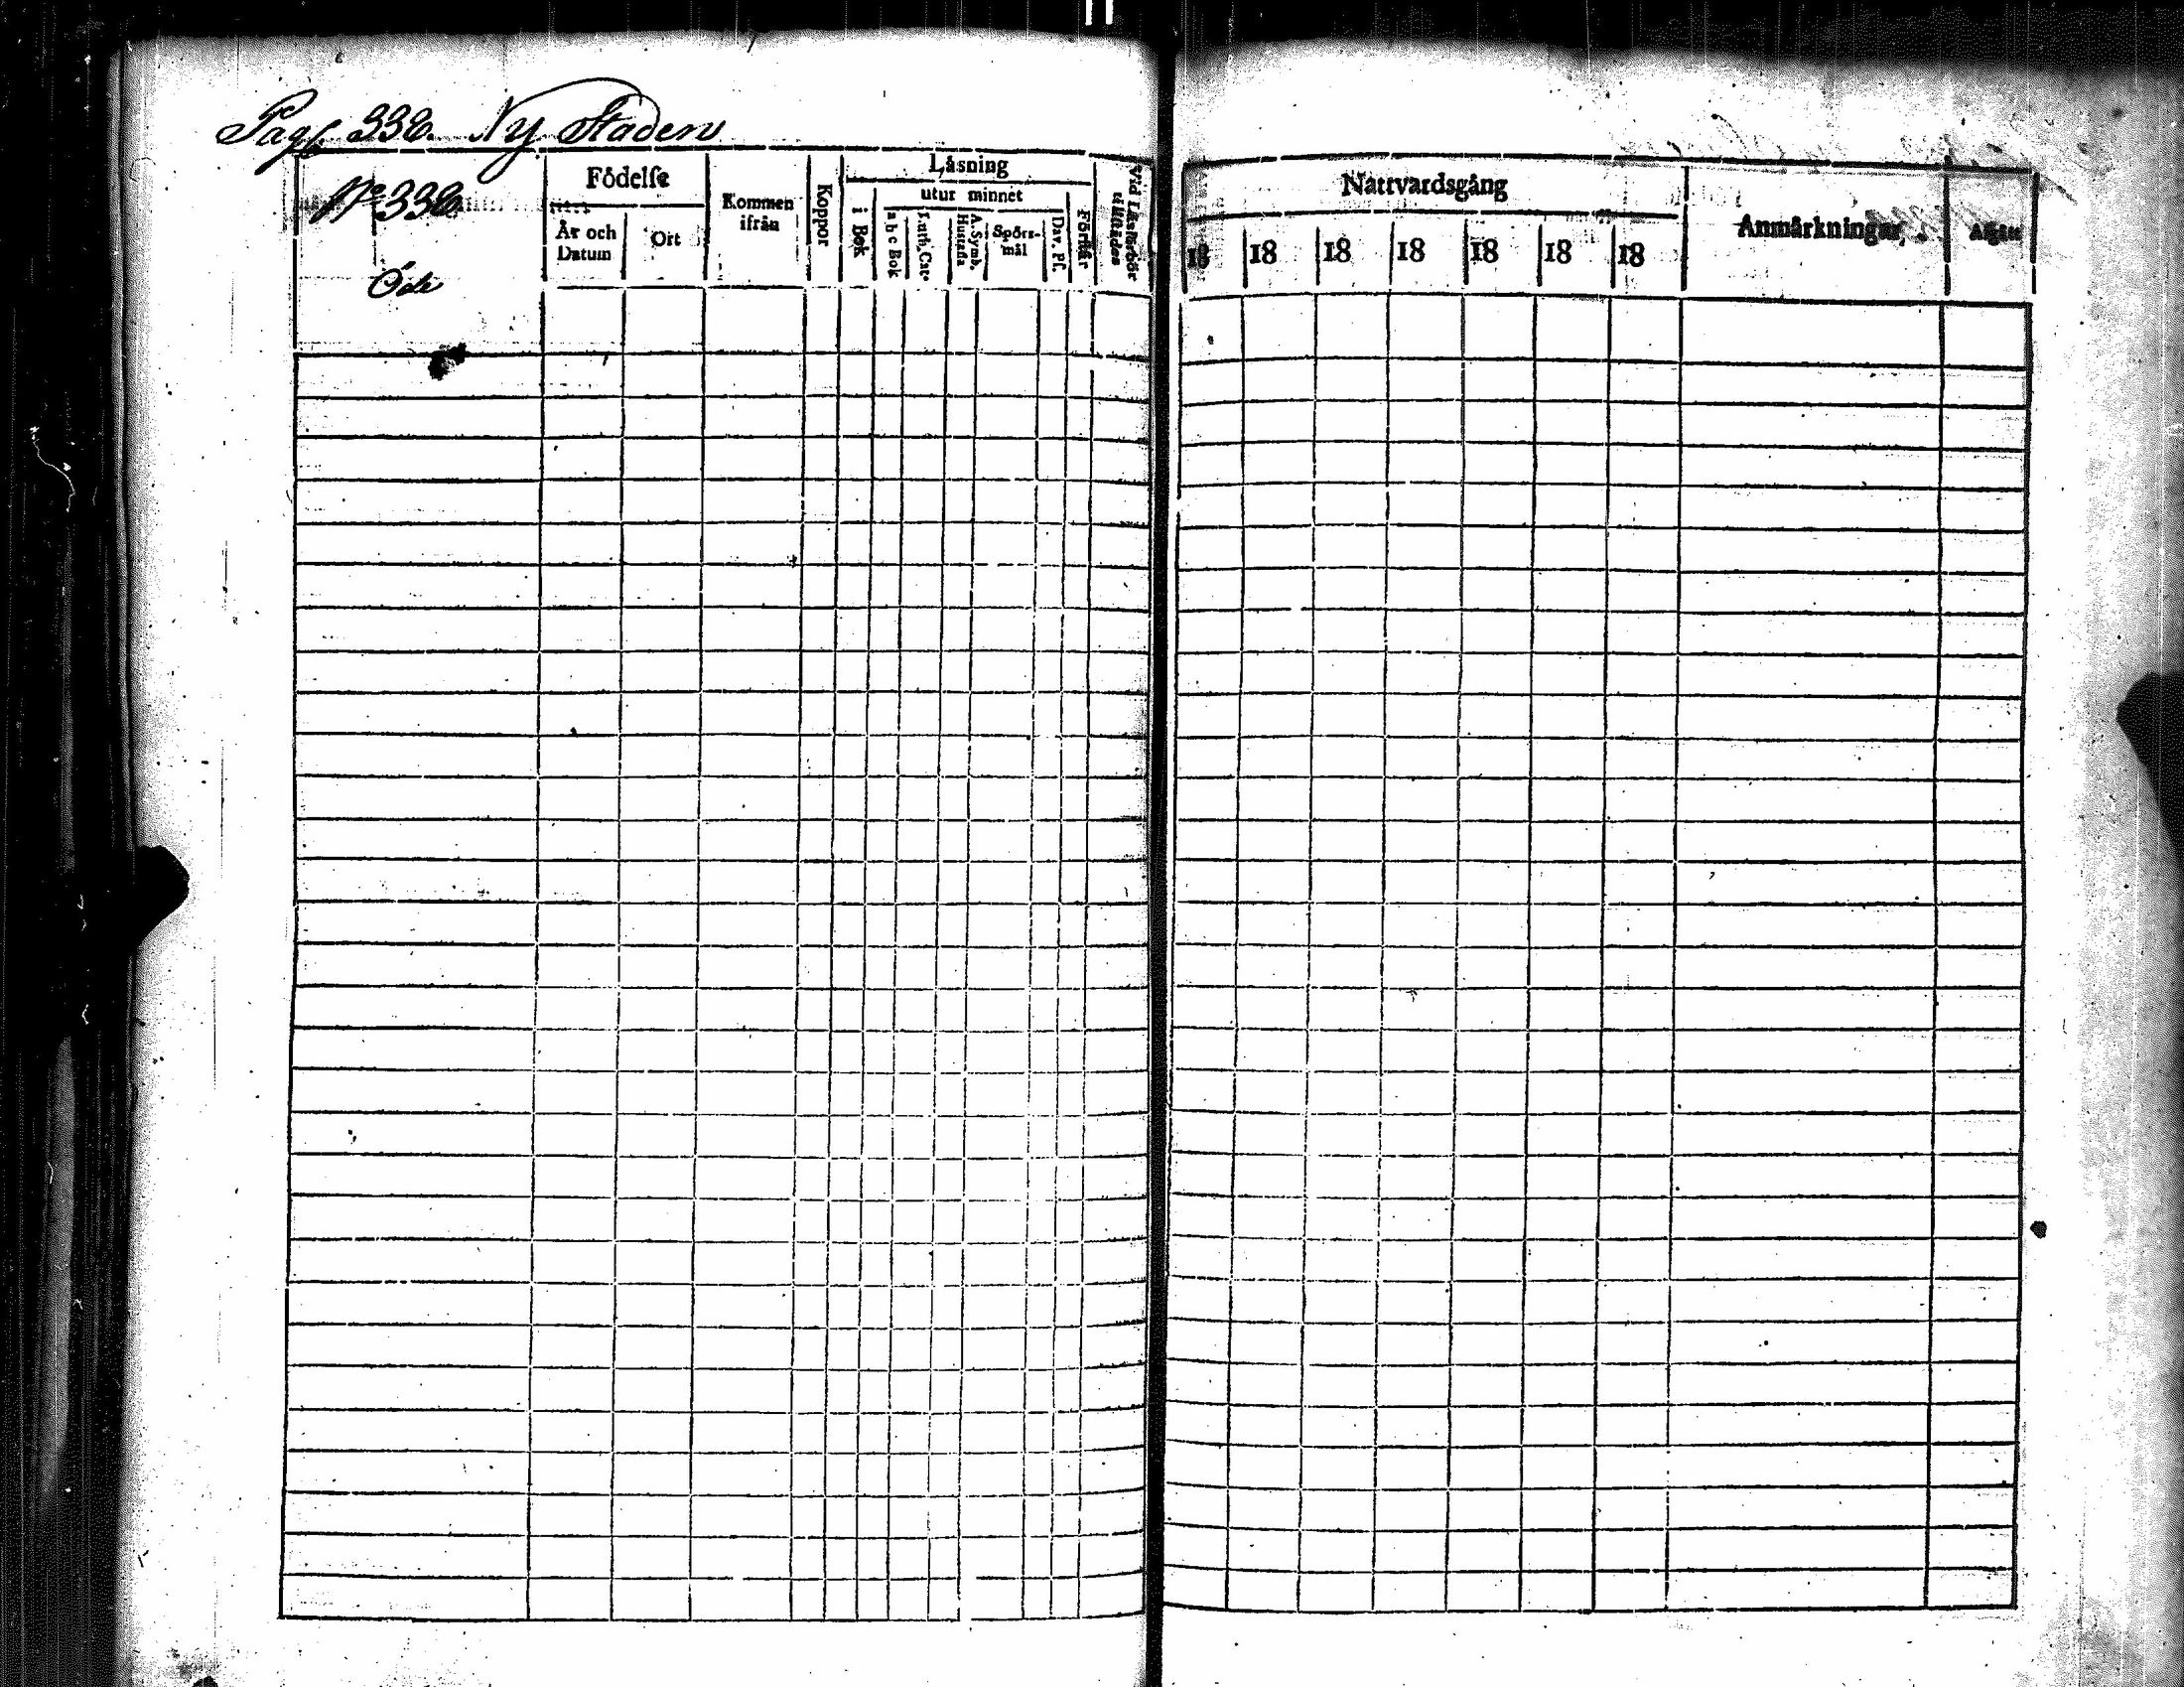 Pag. 336. Ny Staden
No 336
Öde
Födelse
År och Datum
Ort
Kommen ifrån
Koppor
Låsning
i Bok
utur minnet
a b c Bok
Luth. Cat.
A. Symb. Hustafla
Spörsmål
Dav. Ps.
Förstår
Vid Läsförhör tillstädes
Nattvardsgång
18 18 18 18 18 18 18
Anmärkningar.
Afgått